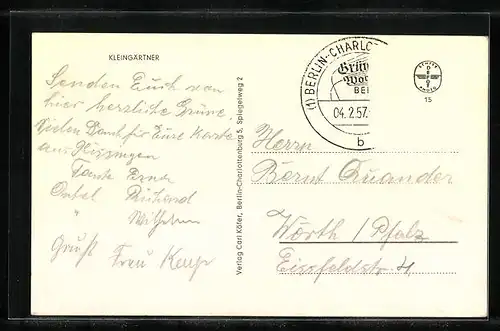 KLEINGÄRTNER
Senden Euch von
hier herzliche Grüße,
Vielen Dank für Eure Karte
aus
Tante Erna
Onkel Richard
" Wilhelm
Grüßt Frau
Verlag Carl Käfer, Berlin-Charlottenburg 5, Spiegelweg 2
(1) BERLIN-CHARLO
Grün
Wo
BE
04.2.57.
b
15
Herrn
Bernt Quander
Wörth / Pfalz
Eissfeldstr. 4